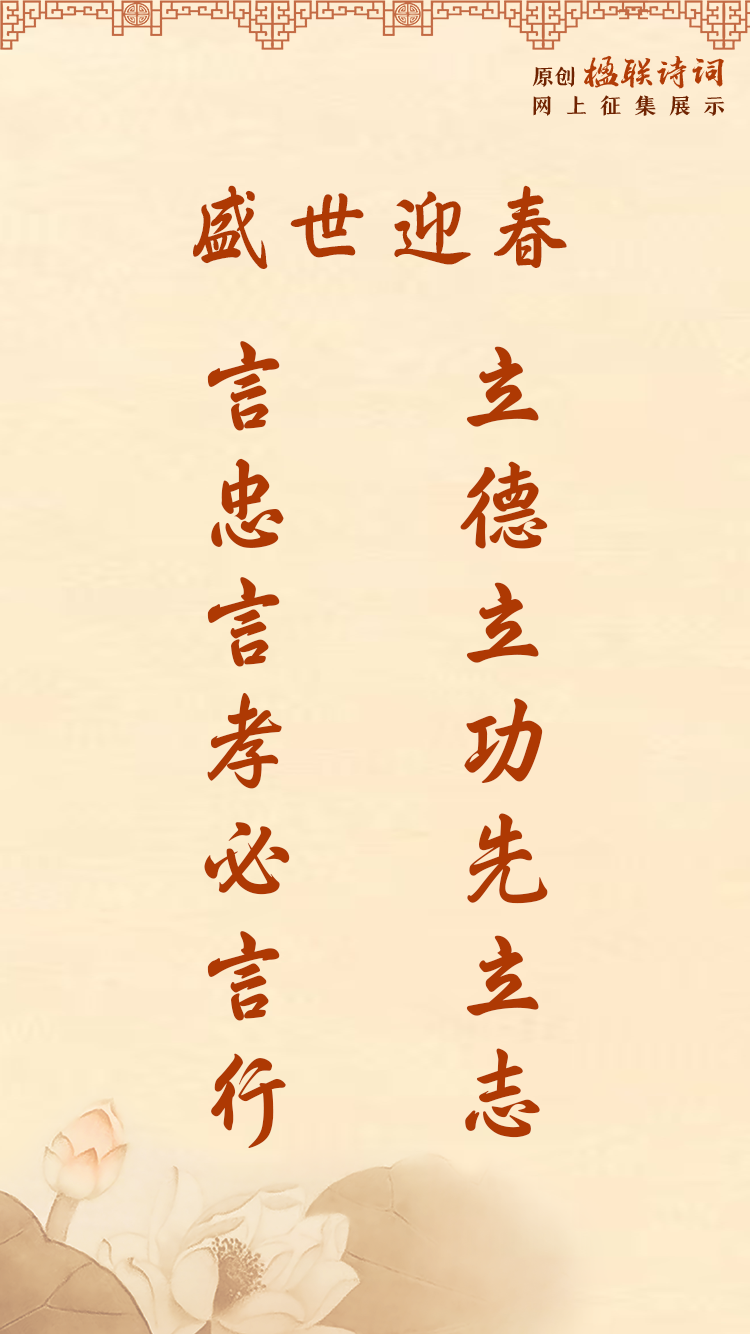 原创楹联诗词
网上征集展示
盛世迎春
立德立功先立志
言忠言孝必言行